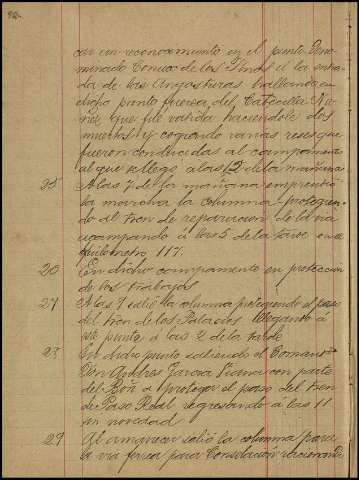 car un reconocimiento en el punto deno-
minado Conuco de los Pinos á la entra-
da de las Angosturas hallando en
dicho punto fuerzas del Cabecilla Nu-
ñez que fué batida haciendole dos
muertos y cogiendo varias reses que
fueron conducidas al campamento
al que se llegó á las 12 de la mañana
25 A las 7 de la mañana emprendió
la marcha la columna protegien-
do el tren de reparacion de la via
acampando á las 5 de la tarde en el
Kilometro 117.
26 En dicho campamento en proteccion
de los trabajos
27 A las 7 salió la columna protegiendo el paso
del tren de los Palacios llegando á
este punto á las 2 de la tarde
28 En dicho punto saliendo el Comand.te
Don Andres Garcia con parte
del Bón á proteger el paso del tren
de Paso Real regresando á las 11
sin novedad
29 Al amanecer salió la columna para
la via ferrea para Consolacion